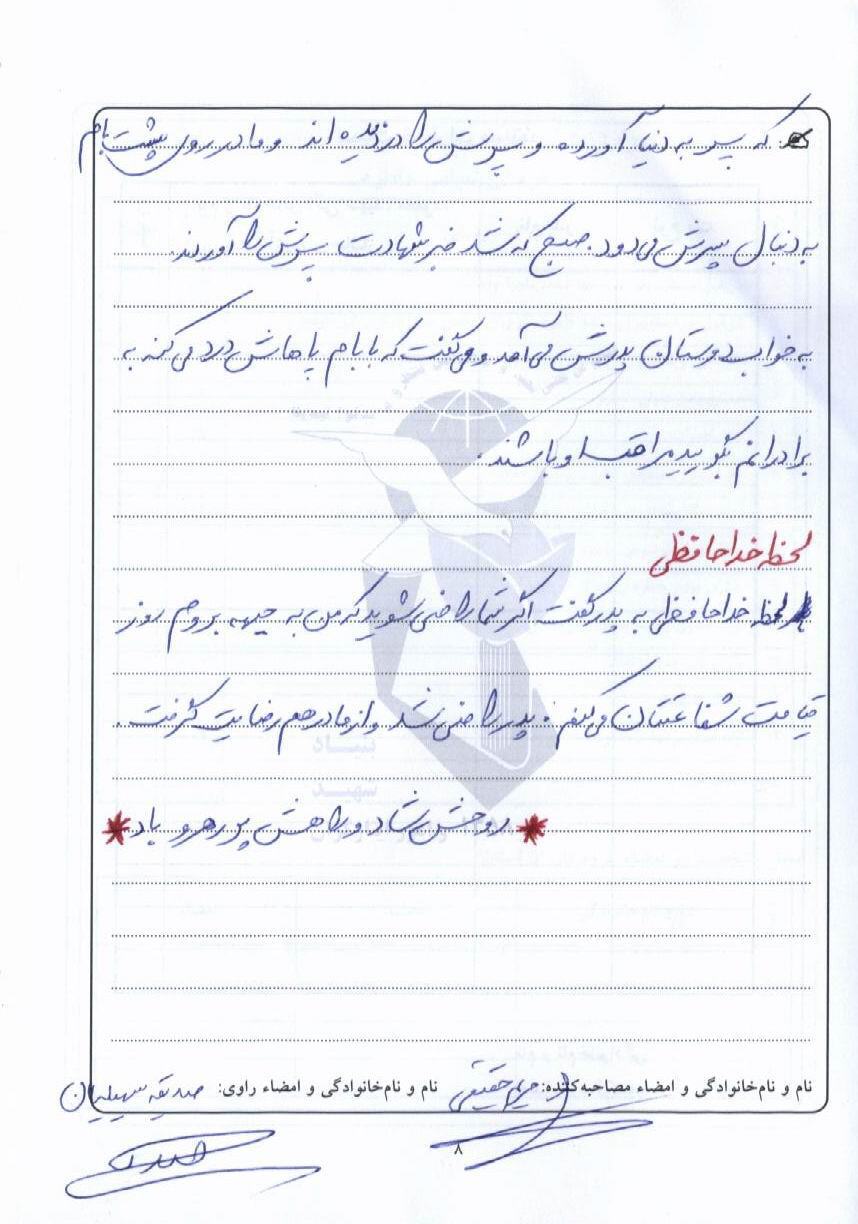 که پسر به دنیا آورده و پسرش را دزدیده اند و مادر روی پشت بام
به دنبال پسرش می دود. صبح که شد خبر شهادت پسرش را آوردند.
به خواب دوستان پدرش می آمد و می گفت که بابام پاهاش درد می کنه به
برادرانم بگویید مراقب او باشند.
لحظه خداحافظی
لحظه خداحافظی به پدر گفت اگر شما راضی شوید که من به جبهه بروم روز
قیامت شفاعتتان می کنم. پدر راضی شد و از مادر هم رضایت گرفت.
* روحش شاد و راهش پر رهرو باد *
نام و نام‌خانوادگی و امضاء مصاحبه‌کننده: مریم حقیقی نام و نام‌خانوادگی و امضاء راوی: صدیقه سهیلیان
۸